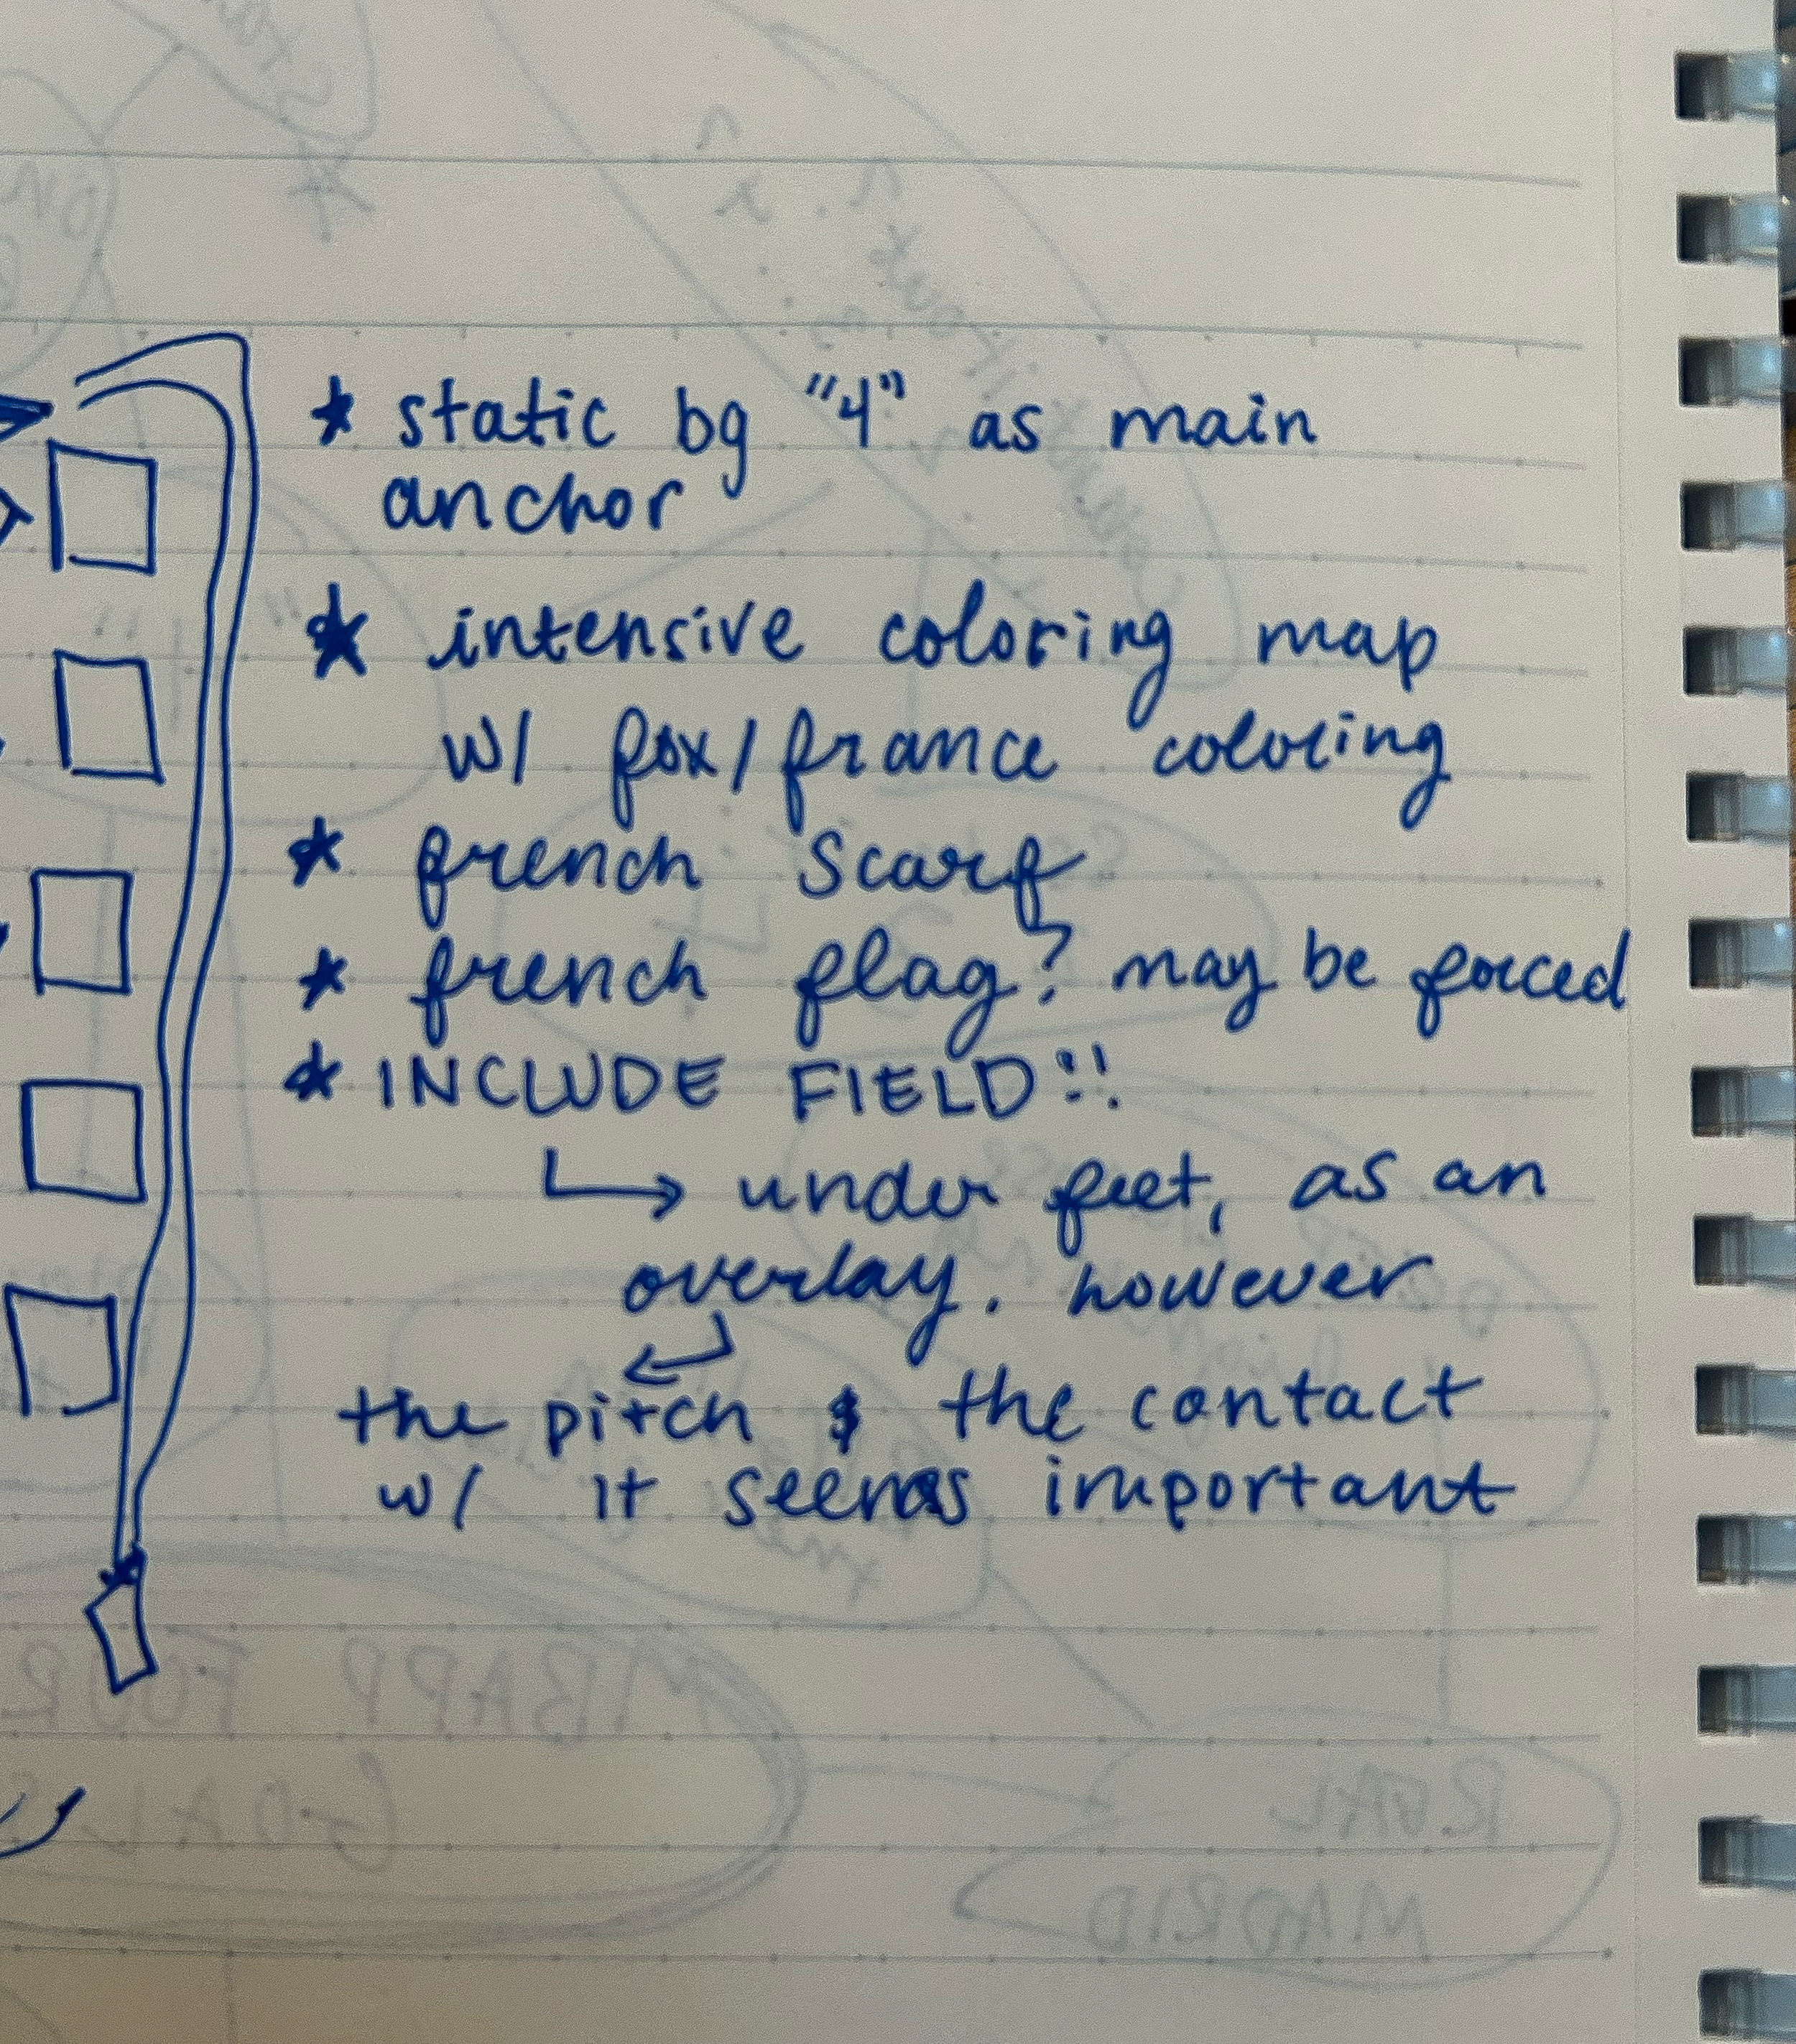 * static bg "4" as main
anchor
* intensive coloring map
w/ fox/france coloring
* french scarf
* french flag? may be forced
* INCLUDE FIELD!!
↳ under feet, as an
overlay. however
the pitch & the contact
w/ it seems important
MBAPP FOUR
GOALS
REAL
MADRID